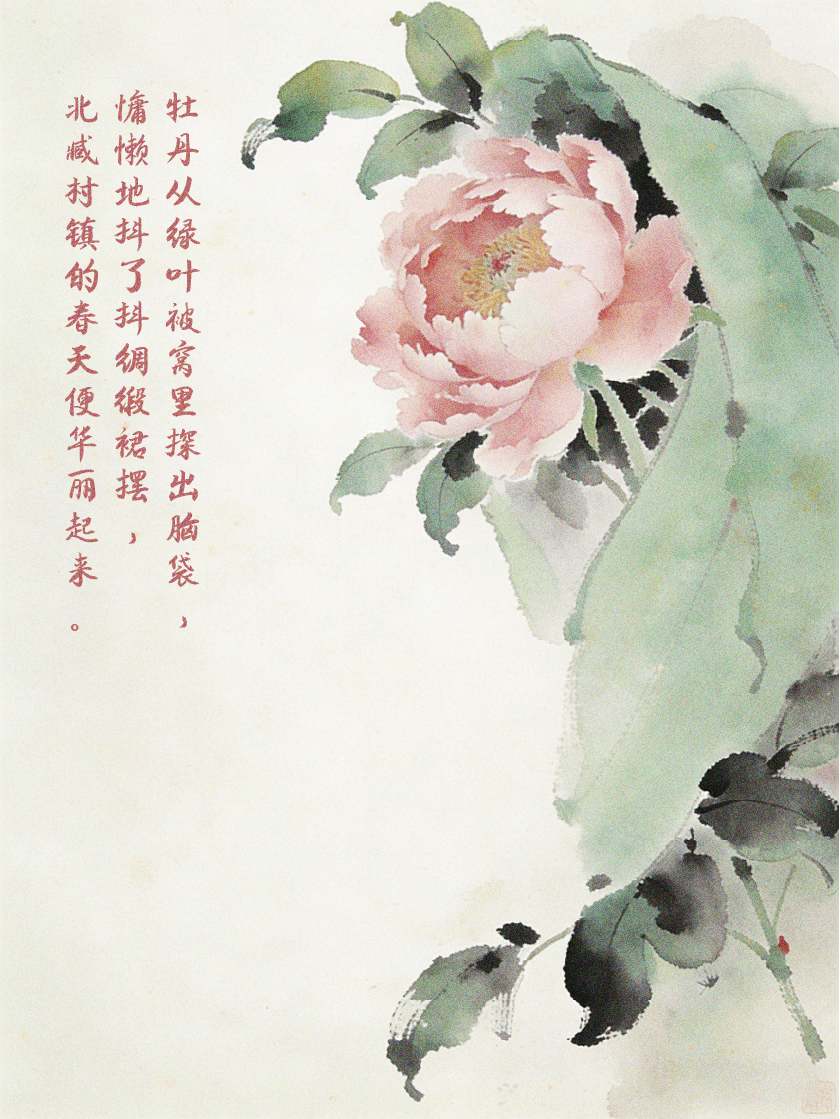 牡丹从绿叶被窝里探出脑袋，
慵懒地抖了抖绸缎裙摆，
北臧村镇的春天便华丽起来。